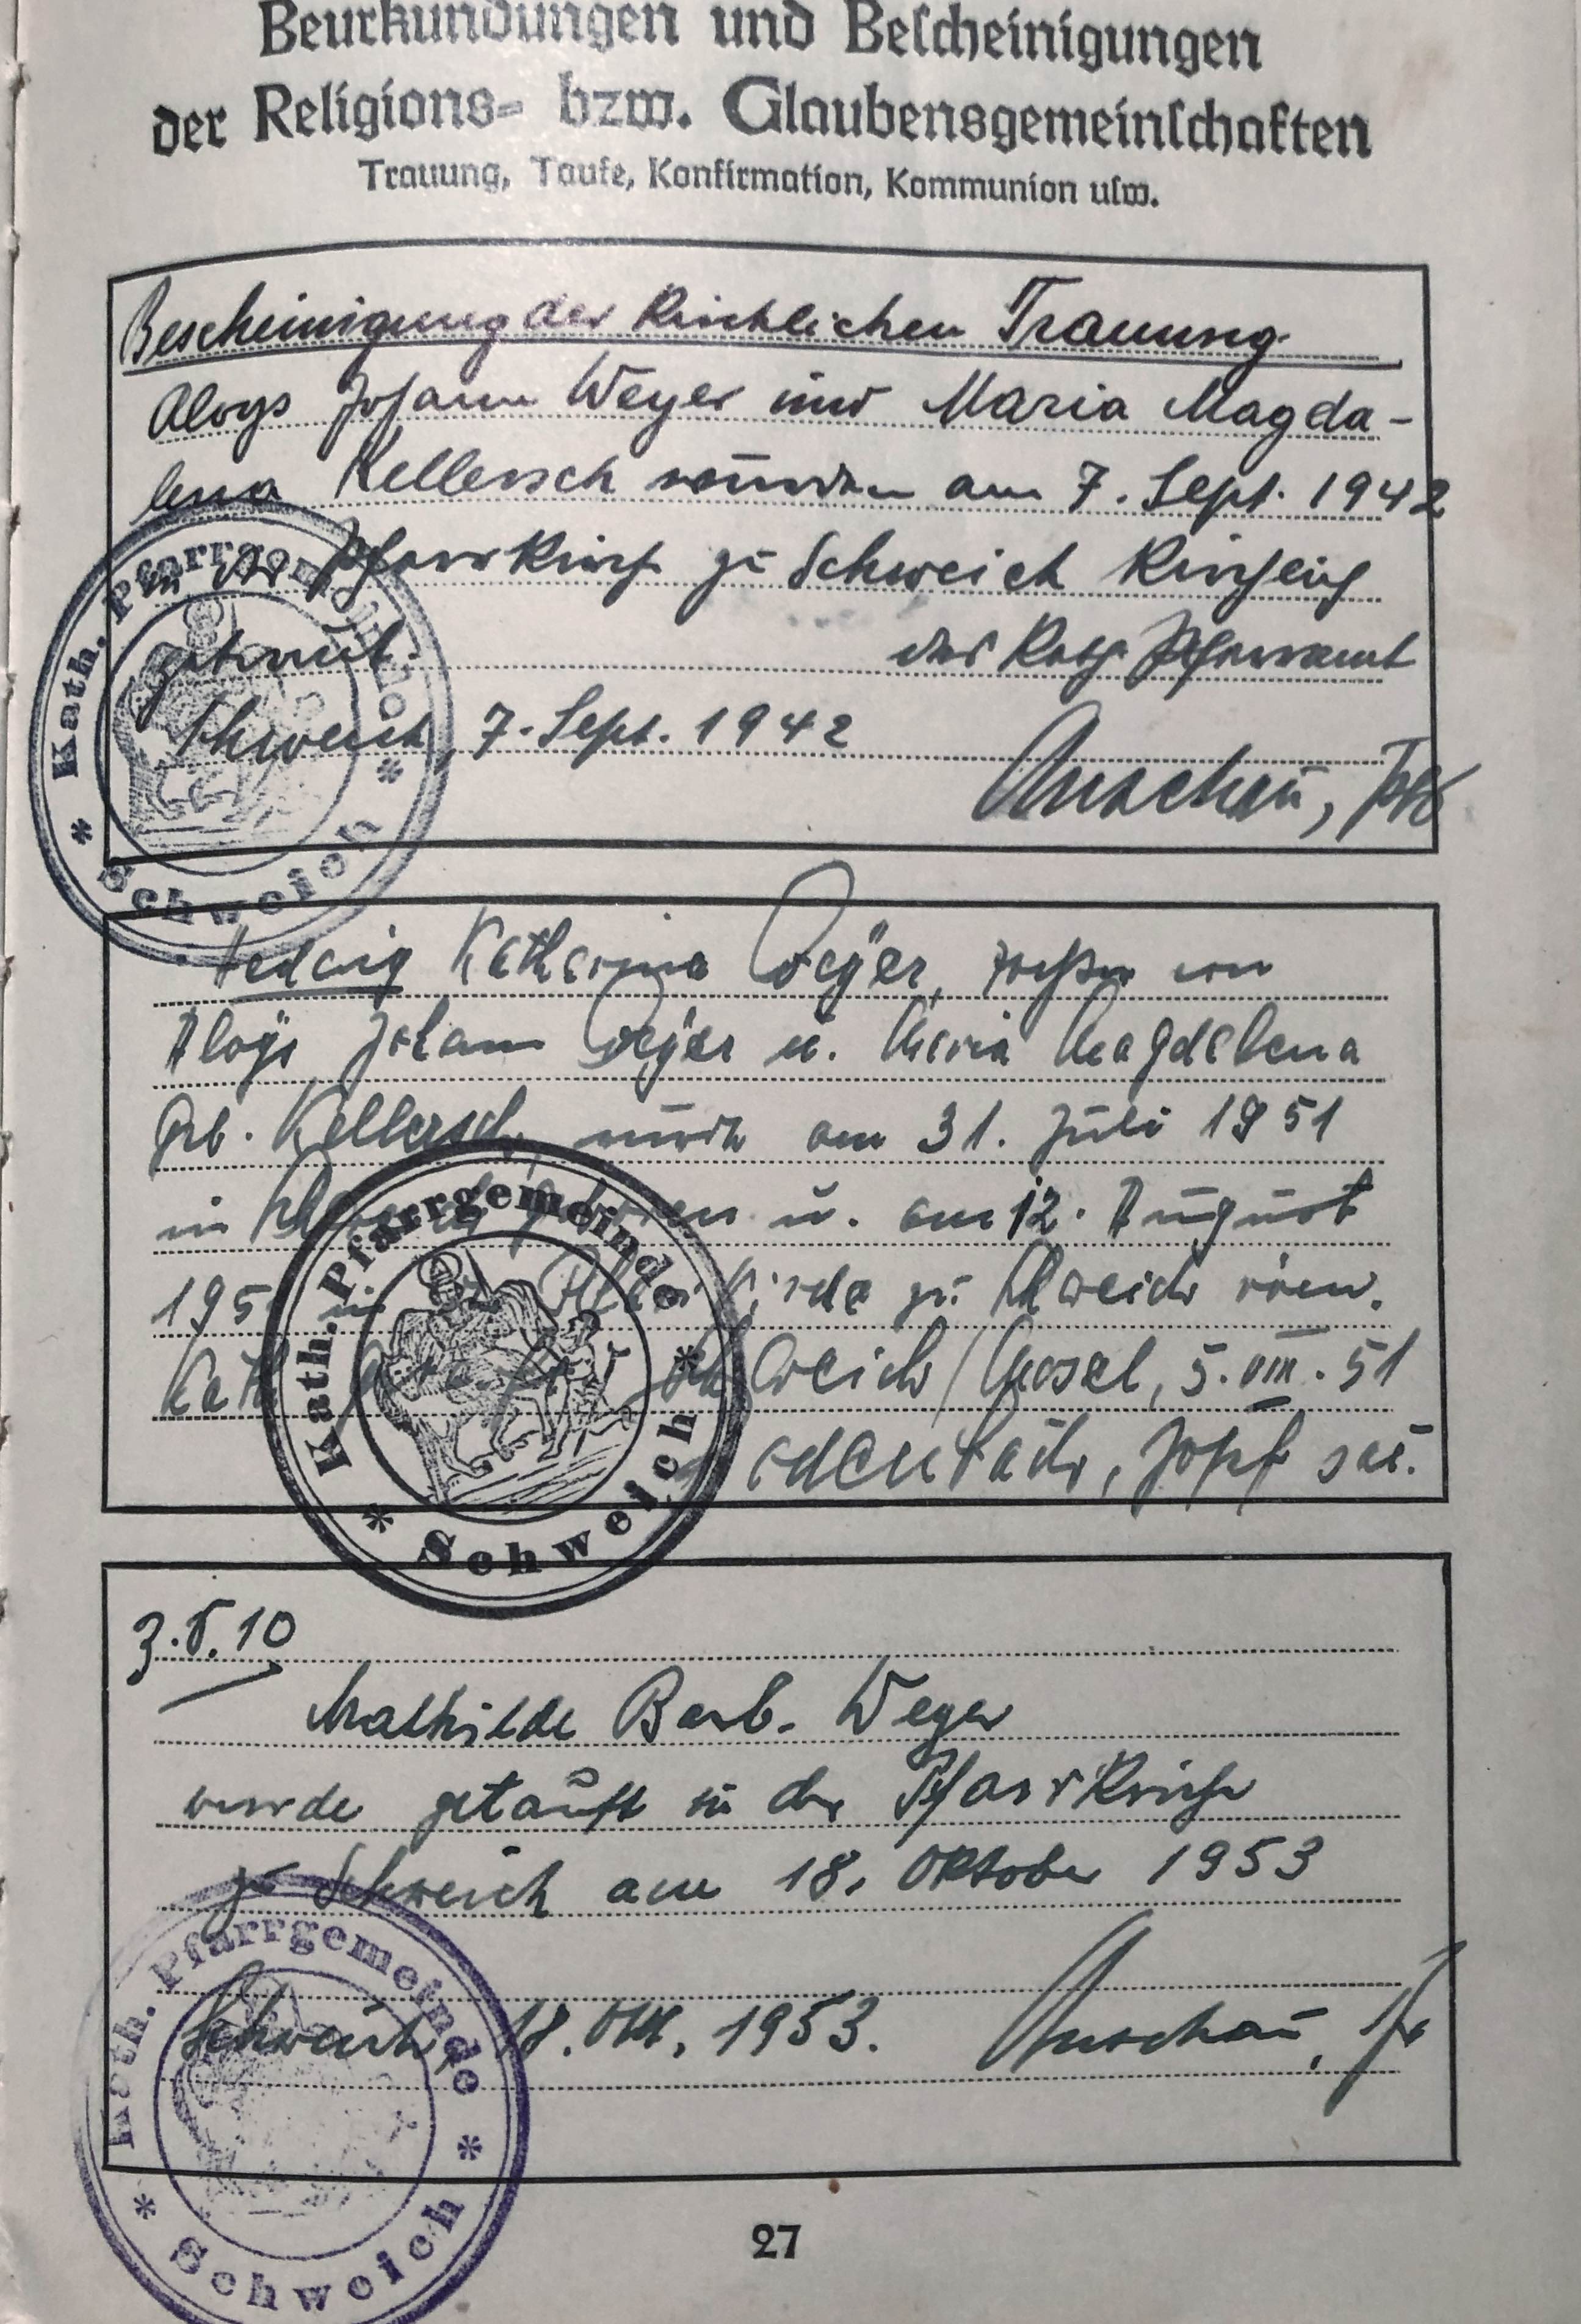 Beurkundungen und Bescheinigungen
der Religions- bzw. Glaubensgemeinschaften
Trauung, Taufe, Konfirmation, Kommunion usw.
Bescheinigung der Kirchlichen Trauung
Aloys Johann Weyer und Maria Magda-
lena Kellersch wurden am 7. Sept. 1942
in der Pfarrkirche zu Schweich kirchlich
getraut.
das Kath. Pfarramt
Schweich, 7. Sept. 1942
Anschau, Pfr
Kath. Pfarrgemeinde
* Schweich *
Hedwig Katharina Weyer, Tochter von
Aloys Johann Weyer u. Maria Magdalena
geb. Kellersch, wurde am 31. Juli 1951
in Schweich geboren u. am 12. August
1951 in der Kirche zu Schweich röm.
kath. getauft. Schweich/Mosel, 5. VIII. 51
Kath. Pfarrgemeinde
* Schweich *
3.5.10
Mathilde Barb. Weyer
wurde getauft in der Pfarrkirche
zu Schweich am 18. Oktober 1953
Schweich, 18. Okt. 1953. Anschau, Pfr
Kath. Pfarrgemeinde
* Schweich *
27